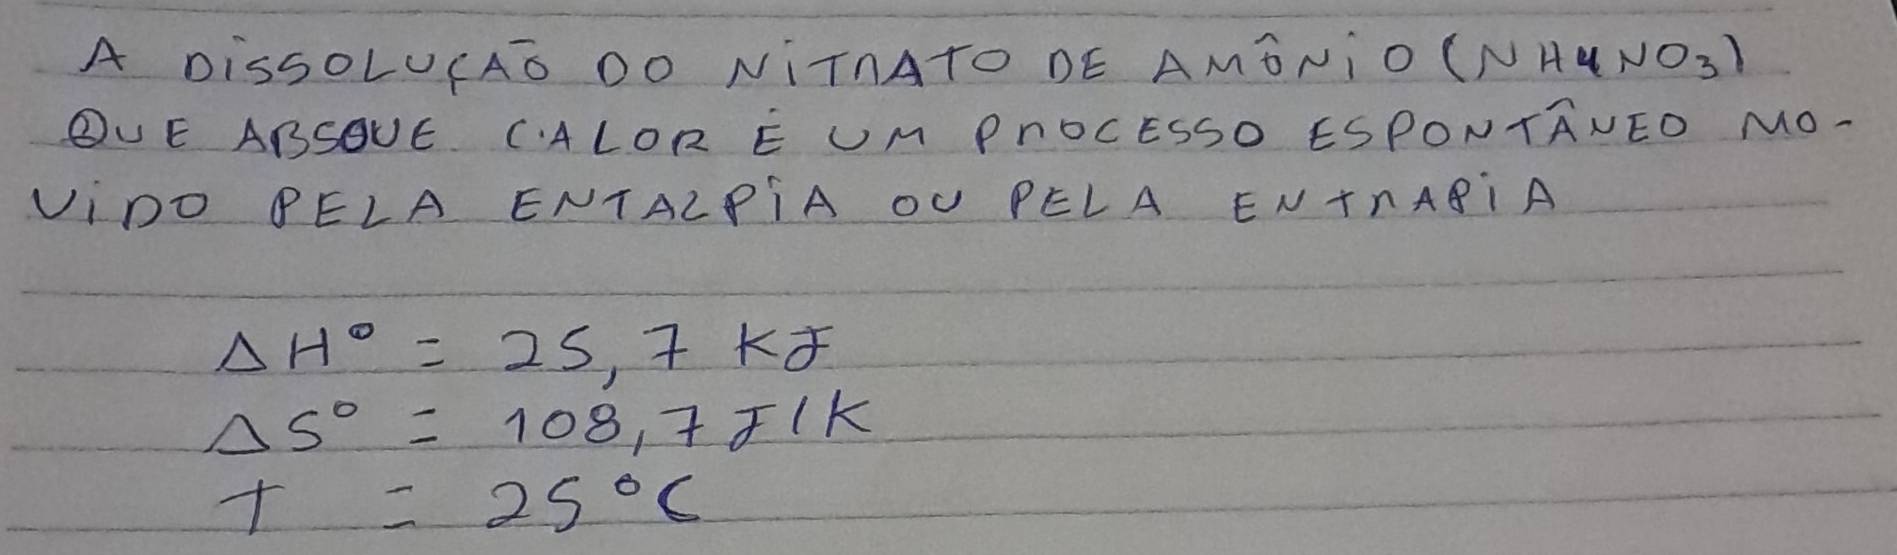 A DISSOLUÇÃO DO NITRATO DE AMÔNIO (NH4NO3)
QUE ABSOVE CALOR É UM PROCESSO ESPONTÂNEO MO-
VIDO PELA ENTALPIA OU PELA ENTRAPIA
ΔH° = 25,7 KJ
ΔS° = 108,7 J/K
T = 25°C